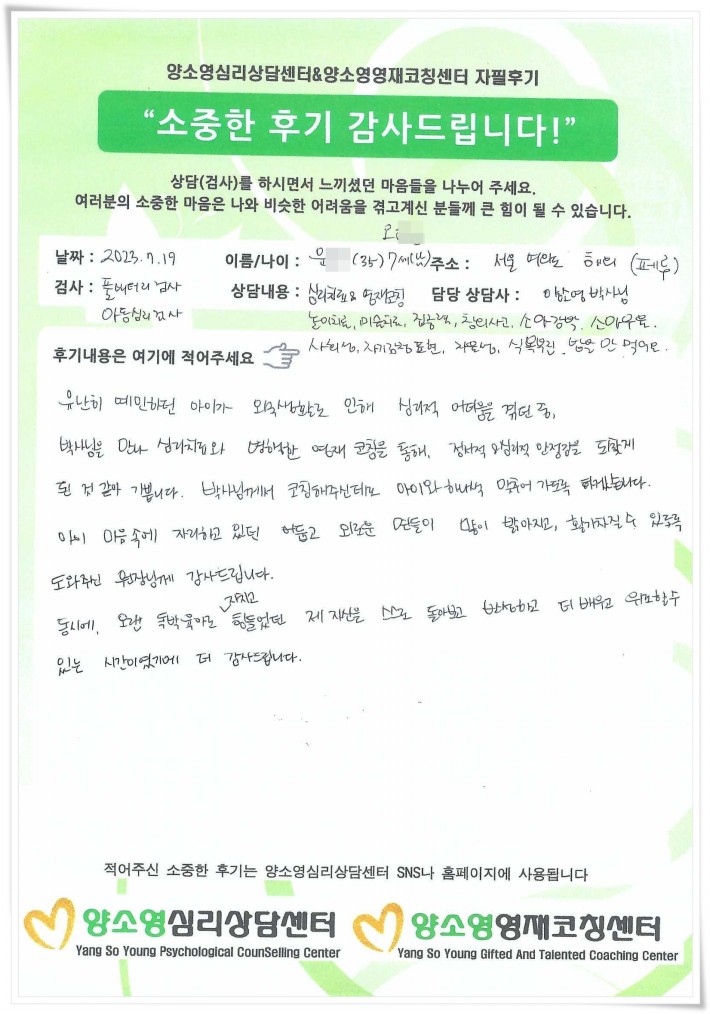 양소영심리상담센터&양소영영재코칭센터 자필후기
“소중한 후기 감사드립니다!”
상담(검사)를 하시면서 느끼셨던 마음들을 나누어 주세요.
여러분의 소중한 마음은 나와 비슷한 어려움을 겪고계신 분들께 큰 힘이 될 수 있습니다.
오
날짜 : 2023.7.19 이름/나이 : 유 (35) 7세(남) 주소 : 서울 여의도 해외 (페루)
검사 : 풀배터리 검사 상담내용 : 심리치료 & 영재코칭 담당 상담사 : 박사님
아동심리검사 놀이치료, 미술치료, 집중력, 창의사고, 소아강박, 소아우울.
사회성, 자기감정표현, 식욕부진. 밥을 안 먹어요.
후기내용은 여기에 적어주세요
유난히 예민하던 아이가 외국생활로 인해 심리적 어려움을 겪던 중,
박사님을 만나 심리치료와 병행한 영재 코칭을 통해, 정서적 심리적 안정감을 되찾게
된 것 같아 기쁩니다. 박사님께서 코칭해주신데로 아이와 하나씩 맞추어 가도록 하겠습니다.
아이 마음속에 자리하고 있던 어둡고 외로운 면들이 많이 밝아지고, 활기차질 수 있도록
도와주신 원장님께 감사드립니다.
지치고
동시에, 오랜 독박육아로 힘들었던 제 자신을 스스로 돌아보고 반성하고 더 배우고 위로할수
있는 시간이였기에 더 감사드립니다.
적어주신 소중한 후기는 양소영심리상담센터 SNS나 홈페이지에 사용됩니다
양소영심리상담센터 양소영영재코칭센터
Yang So Young Psychological CounSelling Center Yang So Young Gifted And Talented Coaching Center